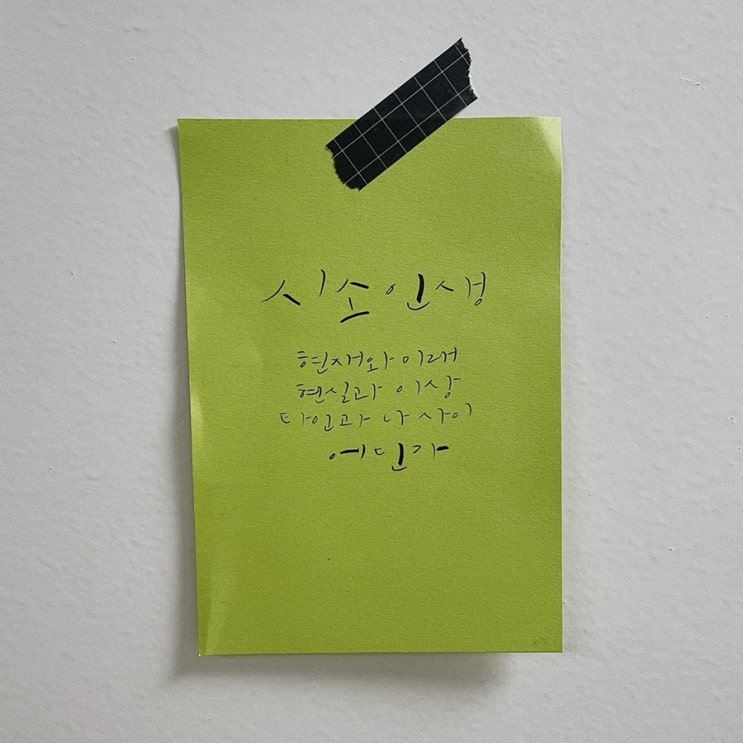 시소인생
현재와 미래
현실과 이상
타인과 나 사이
어딘가